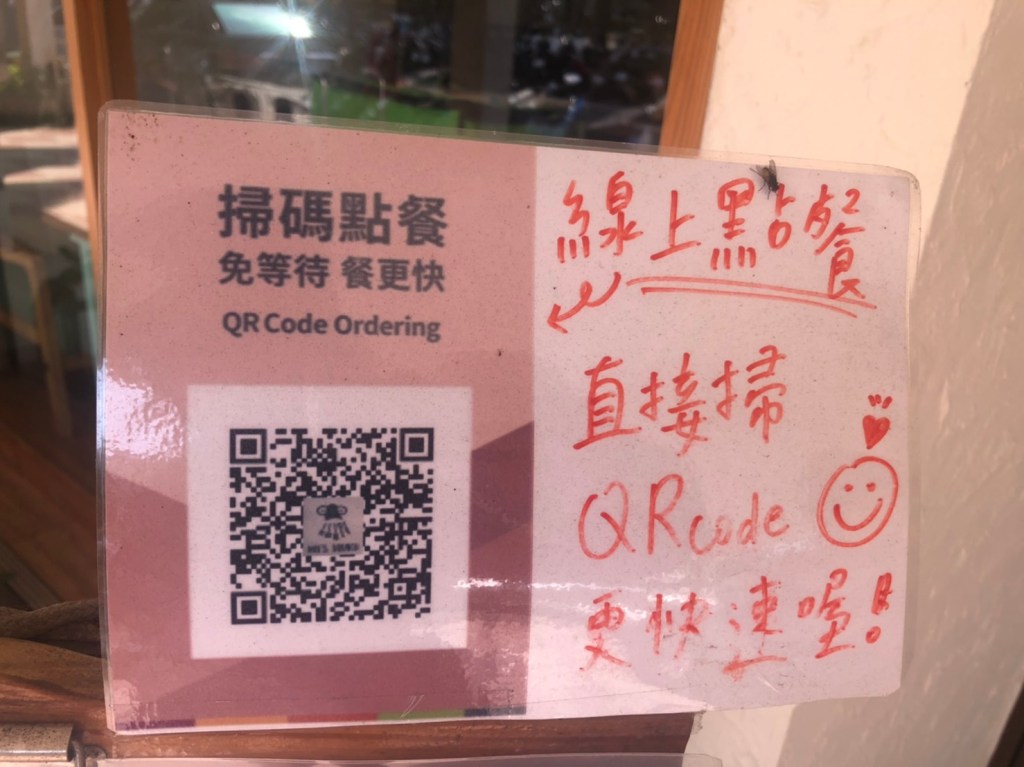 掃碼點餐
免等待 餐更快
QR Code Ordering
線上點餐
直接掃
QR code
更快速喔!